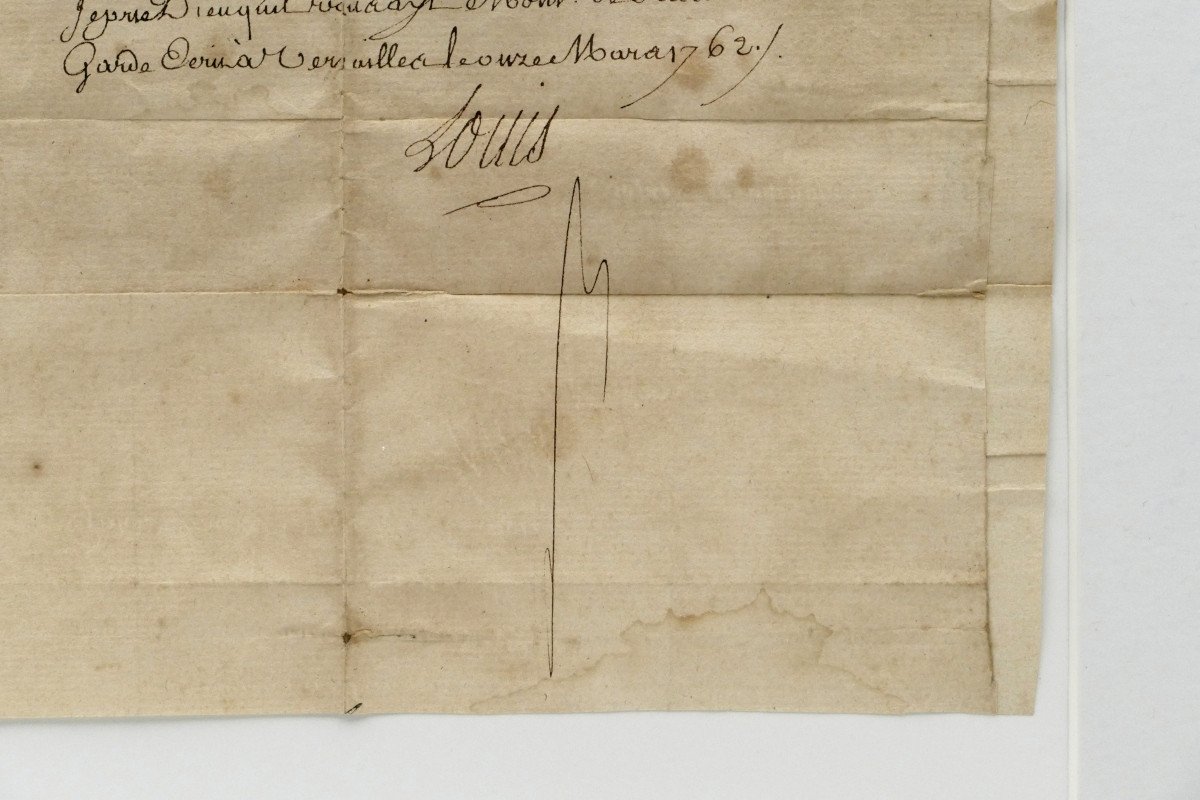 Je prie Dieu qu'il vous ayt Mons. de
Garde Ecrit à Versailles le onze Mars 1762./.
Louis